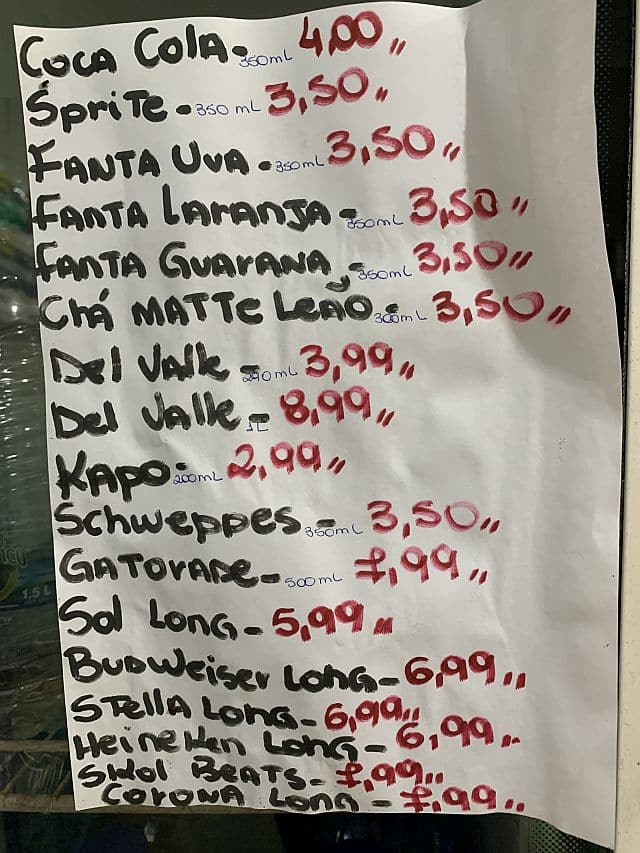 COCA COLA - 350mL 4,00 ,,
SpriTe - 350 mL 3,50 ,,
FANTA UVA - 350mL 3,50 ,,
FANTA LArANJA - 350mL 3,50 ,,
FANTA GUArANA - 350mL 3,50 ,,
Chá MATTE LEÃO - 300mL 3,50 ,,
Del Valle - 290mL 3,99 ,,
Del Valle - 1L 8,99 ,,
KAPO - 200mL 2,99 ,,
Schweppes - 350mL 3,50 ,,
GATOrADe - 500mL 7,99 ,,
Sol LONG - 5,99 ,,
BUDWeiser LONG - 6,99 ,,
STellA LONG - 6,99 ,,
HeineKen LONG - 6,99 ,,
SKol BeATS - 7,99 ,,
COrONA LONG - 7,99 ,,
1.5L